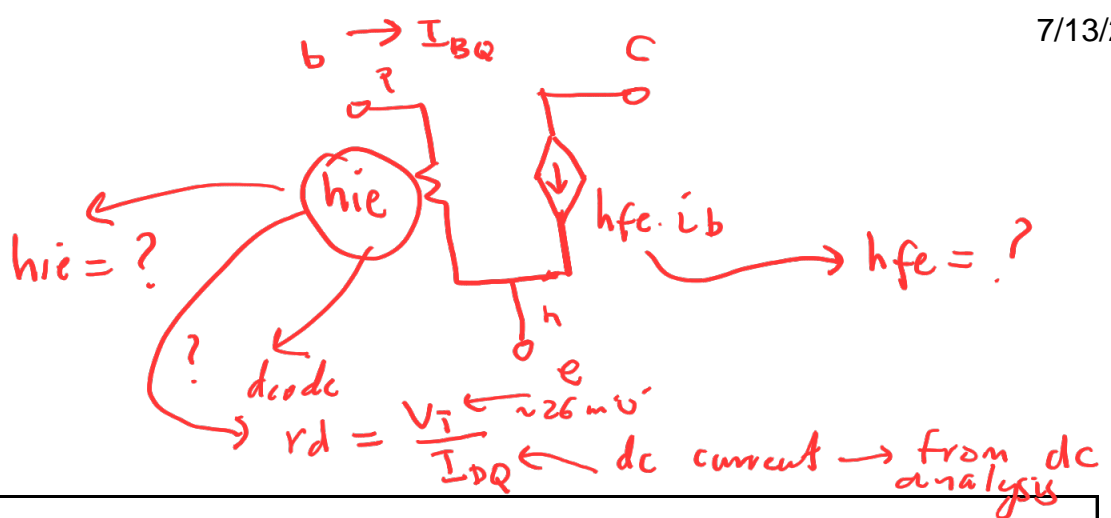 7/13/2
b → I_BQ
C
P
hie
hfe. ib
hie = ?
hfe = ?
n
?
diode
e
rd = V_T / I_DQ
~26 mV
dc current → from dc
analysis